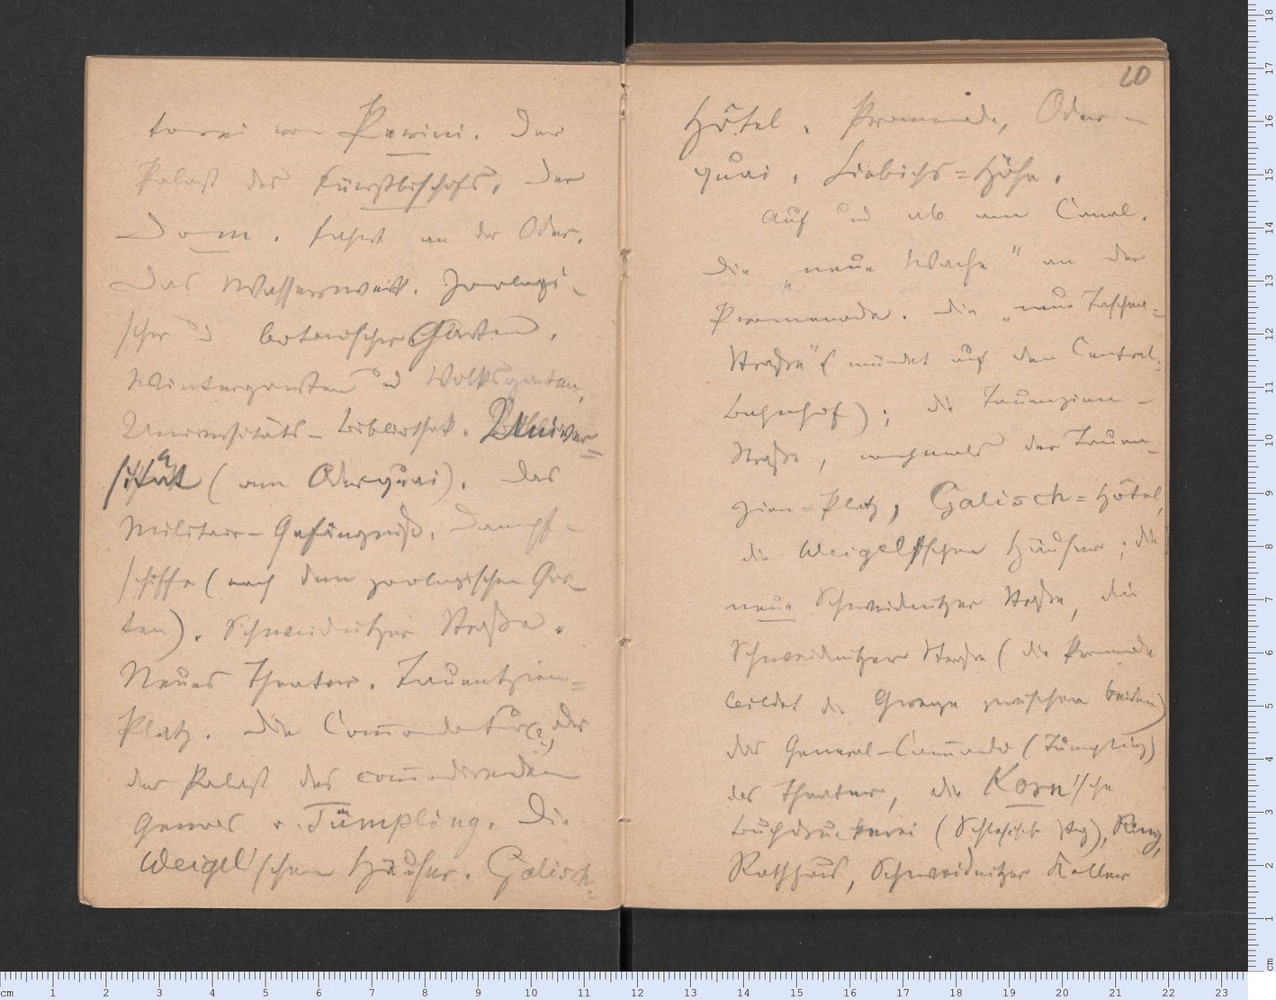 torei von Perini. Der
Palast des Fürstbischofs, Der
Dom. Fahrt an der Oder.
Das Wasserwerk. Zoologi-
scher u botanischer Garten.
Wintergarten und Volksgarten,
Universitäts-Bibliothek. Univer-
sität (am Oderquai). Das
Militair-Gefängniß. Dampf-
schiffe (nach dem zoologischen Gar-
ten). Schweidnitzer Straße.
Neues Theater. Tauentzien-
Platz. Die Commandantur(?) oder
der Palast des commandirenden
Generals v. Tümpling. Die
Weigel'schen Häuser. Galisch-
20
Hôtel. Promenade, Oder-
quai. Liebichs-Höhe.
Auf und ab am Canal.
Die „neue Wache" an der
Promenade. Die „neue Taschen-
Straße" (mündet auf den Central-
Bahnhof); die Tauenzien-
Straße, der Tauen-
zien-Platz, Galisch-Hôtel,
die Weigelschen Häuser; die
neue Schweidnitzer Straße, die
Schweidnitzer Straße (die Promenade
bildet die Grenze zwischen beiden)
das General-Commando (Tümpling)
das Theater, die Korn'sche
Buchdruckerei (Schlesische Ztg), Ring,
Rathhaus, Schweidnitzer Keller